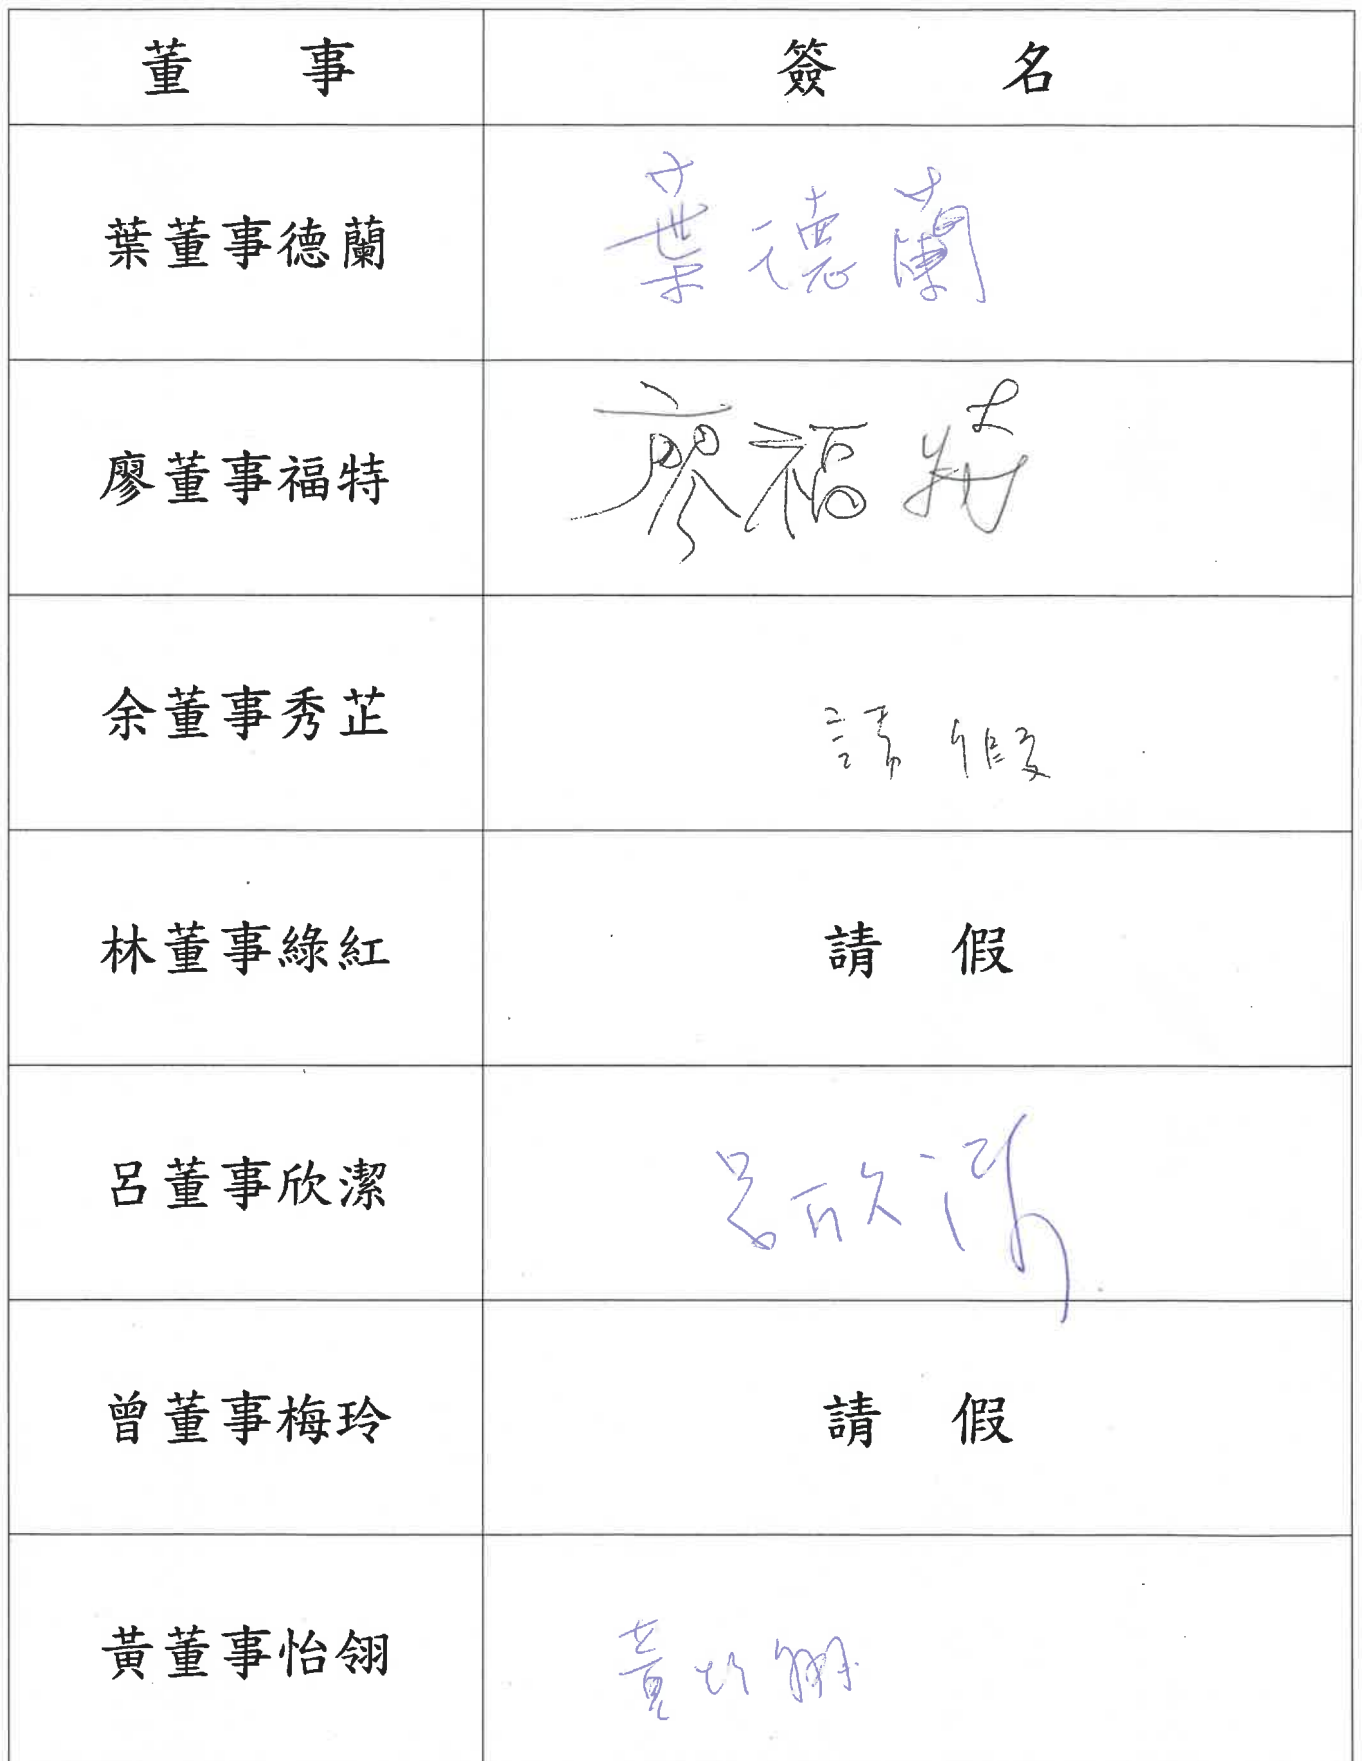 董事 簽名
葉董事德蘭 葉德蘭
廖董事福特 廖福特
余董事秀芷 請假
林董事綠紅 請假
呂董事欣潔 呂欣潔
曾董事梅玲 請假
黃董事怡翎 黃怡翎